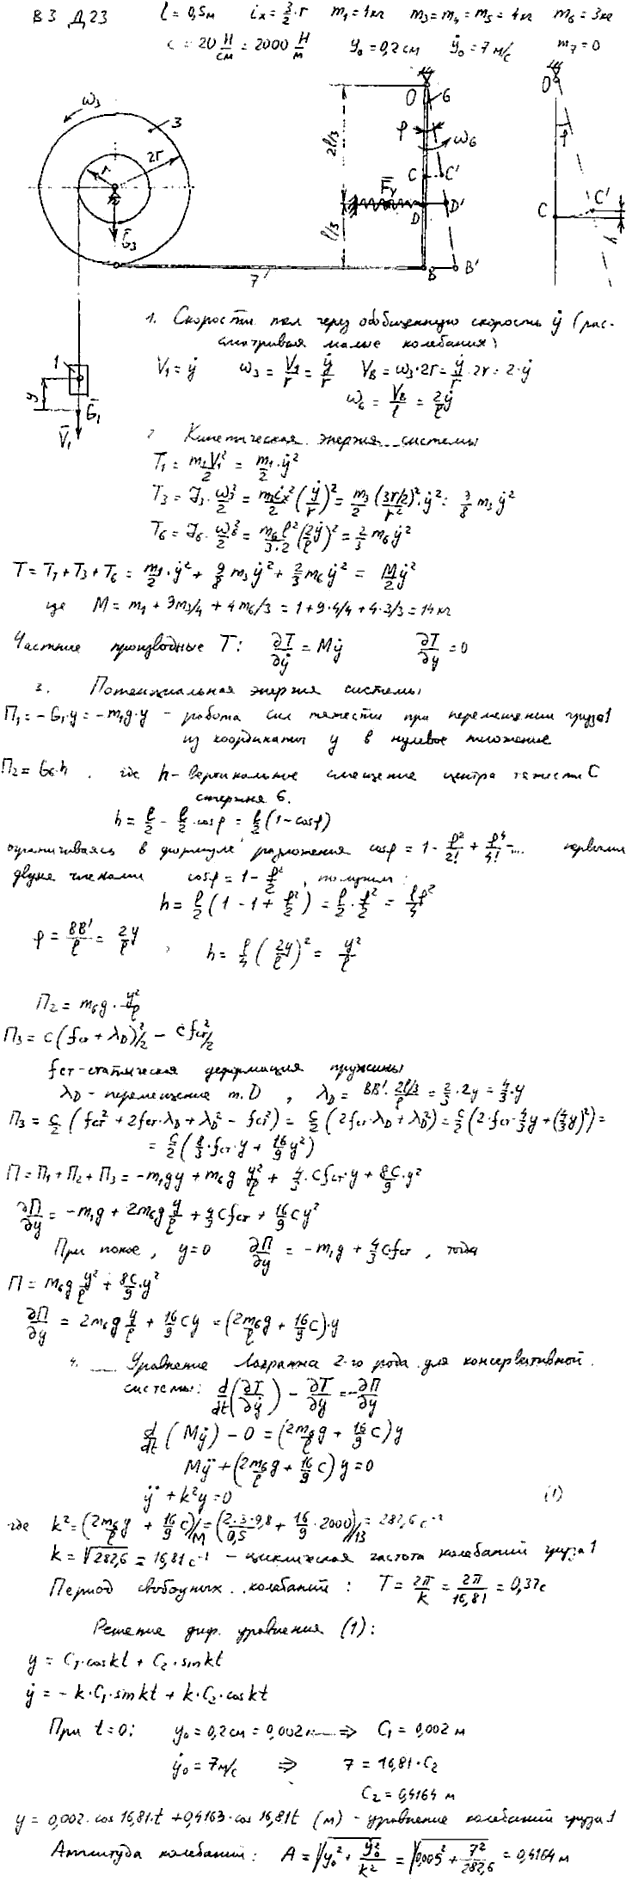 В3 Д23 l = 0,5м iₓ = 3/2·r m₁ = 1кг m₃ = m₄ = m₅ = 4кг m₆ = 3кг
c = 20 Н/см = 2000 Н/м y₀ = 0,2см ẏ₀ = 7м/с m₇ = 0
ω₃ 3 2r r G̅₃ 7 1 y G̅₁ V̅₁
2l/3 l/3 O 6 φ ω₆ C C' F̅y D D' B B'
O φ C C' h
1. Скорости тел через обобщенную скорость ẏ (рас-
сматривая малые колебания)
V₁ = ẏ ω₃ = V₁/r = ẏ/r V_B = ω₃·2r = ẏ/r·2r = 2·ẏ
ω₆ = V_B/l = 2ẏ/l
2 Кинетическая энергия системы
T₁ = m₁V₁²/2 = m₁/2·ẏ²
T₃ = J₃·ω₃²/2 = m₃iₓ²/2 (ẏ/r)² = m₃/2 (3r/2)²/r²·ẏ² = 9/8 m₃ẏ²
T₆ = J₆·ω₆²/2 = m₆l²/3·2 (2ẏ/l)² = 2/3 m₆ẏ²
T = T₁ + T₃ + T₆ = m₁/2·ẏ² + 9/8 m₃ẏ² + 2/3 m₆ẏ² = M/2 ẏ²
где M = m₁ + 9m₃/4 + 4m₆/3 = 1 + 9·4/4 + 4·3/3 = 14кг
Частные производные T: ∂T/∂ẏ = Mẏ ∂T/∂y = 0
3. Потенциальная энергия системы
П₁ = -G₁·y = -m₁g·y - работа сил тяжести при перемещении груза 1
из координаты y в нулевое положение
П₂ = G₆·h . где h - вертикальное смещение центра тяжести C
стержня 6.
h = l/2 - l/2·cosφ = l/2 (1-cosφ)
ограничиваясь в формуле разложения cosφ = 1 - φ²/2! + φ⁴/4! -... первыми
двумя членами cosφ = 1 - φ²/2, получим:
h = l/2 (1 - 1 + φ²/2) = l/2·φ²/2 = l/4 φ²
φ = BB'/l = 2y/l , h = l/4 (2y/l)² = y²/l
П₂ = m₆g·y²/l
П₃ = c(fст + λ_D)²/2 - cfст²/2
fст - статическая деформация пружины
λ_D - перемещение т. D , λ_D = BB'·2l/3/l = 2/3·2y = 4/3·y
П₃ = c/2 (fст² + 2fст·λ_D + λ_D² - fст²) = c/2 (2fст·λ_D + λ_D²) = c/2 (2·fст·4/3 y + (4/3 y)²) =
= c/2 (8/3·fст·y + 16/9 y²)
П = П₁ + П₂ + П₃ = -m₁gy + m₆g y²/l + 4/3·cfст·y + 8c/9·y²
∂П/∂y = -m₁g + 2m₆g y/l + 4/3 cfст + 16/9 cy²
При покое, y=0 ∂П/∂y = -m₁g + 4/3 cfст , тогда
П = m₆g y²/l + 8c/9·y²
∂П/∂y = 2m₆g y/l + 16/9 cy = (2m₆g/l + 16/9 c)·y
4. Уравнение Лагранжа 2-го рода для консервативной
системы: d/dt(∂T/∂ẏ) - ∂T/∂y = -∂П/∂y
d/dt (Mẏ) - 0 = (2m₆g/l + 16/9 c) y
Mÿ + (2m₆g/l + 16/9 c) y = 0
ÿ + k²y = 0 (1)
где k² = (2m₆g/l + 16/9 c)/M = (2·3·9,8/0,5 + 16/9·2000)/13 = 282,6 с⁻²
k = √282,6 = 16,81 с⁻¹ - циклическая частота колебаний груза 1
Период свободных колебаний: T = 2π/k = 2π/16,81 = 0,37с
Решение диф. уравнения (1):
y = C₁·coskt + C₂·sinkt
ẏ = -k·C₁·sinkt + k·C₂·coskt
При t=0: y₀ = 0,2см = 0,002м ⟹ C₁ = 0,002 м
ẏ₀ = 7м/с ⟹ 7 = 16,81·C₂
C₂ = 0,4164 м
y = 0,002·cos 16,81·t + 0,4163·cos 16,81t (м) - уравнение колебаний груза 1
Амплитуда колебаний: A = √(y₀² + ẏ₀²/k²) = √(0,005² + 7²/282,6) = 0,4164 м